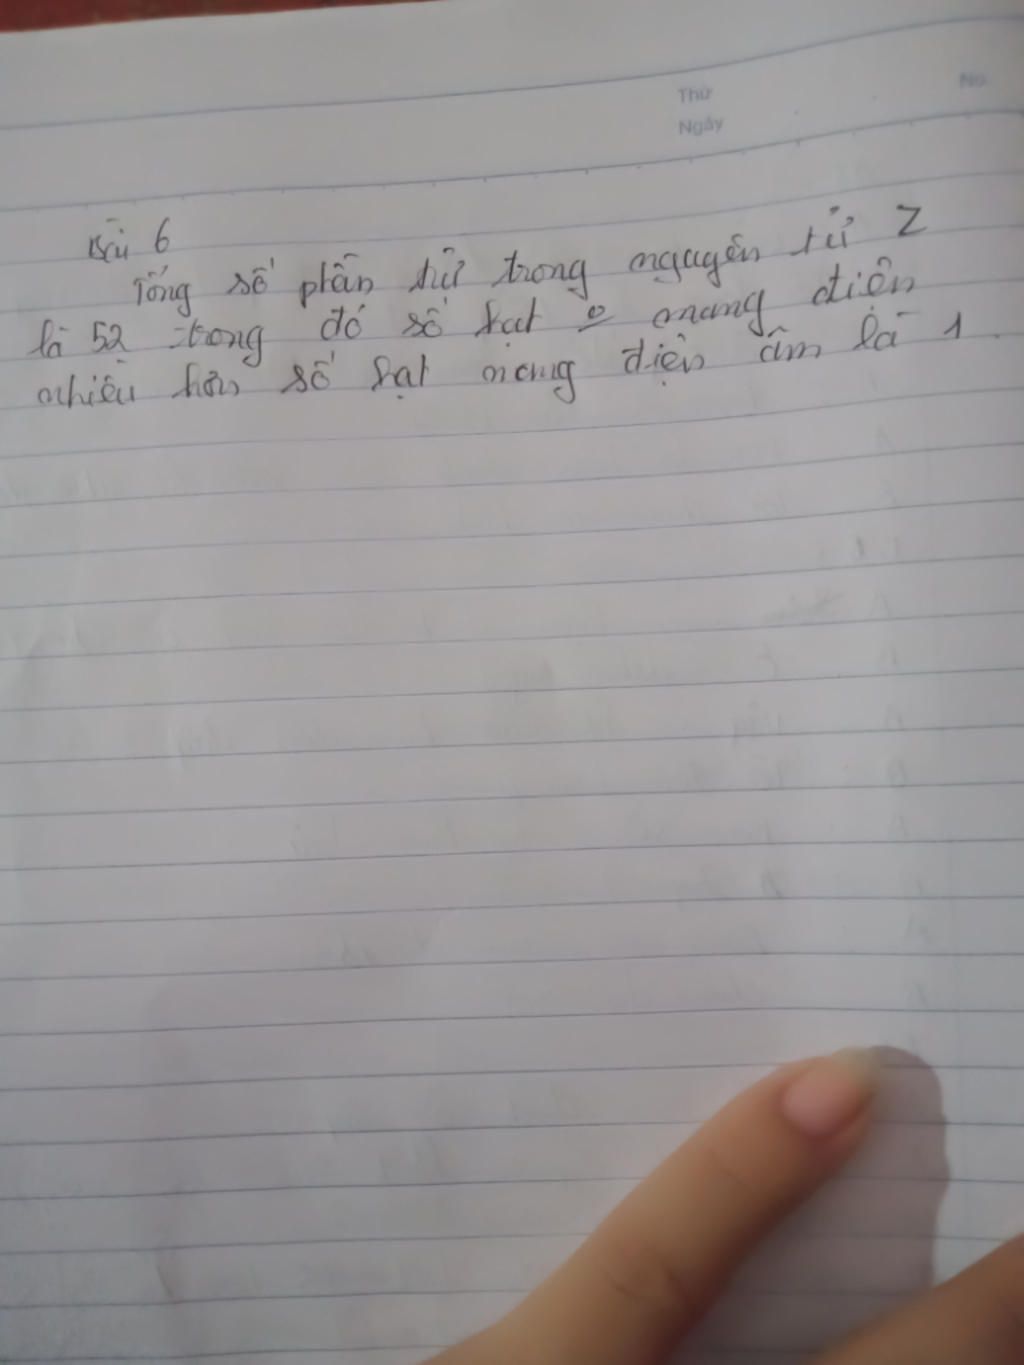 Thứ
No
Ngày
Bài 6
Tổng số phần tử trong nguyên tử Z
là 52 trong đó số hạt o mang điện
nhiều hơn số hạt mang điện âm là 1.